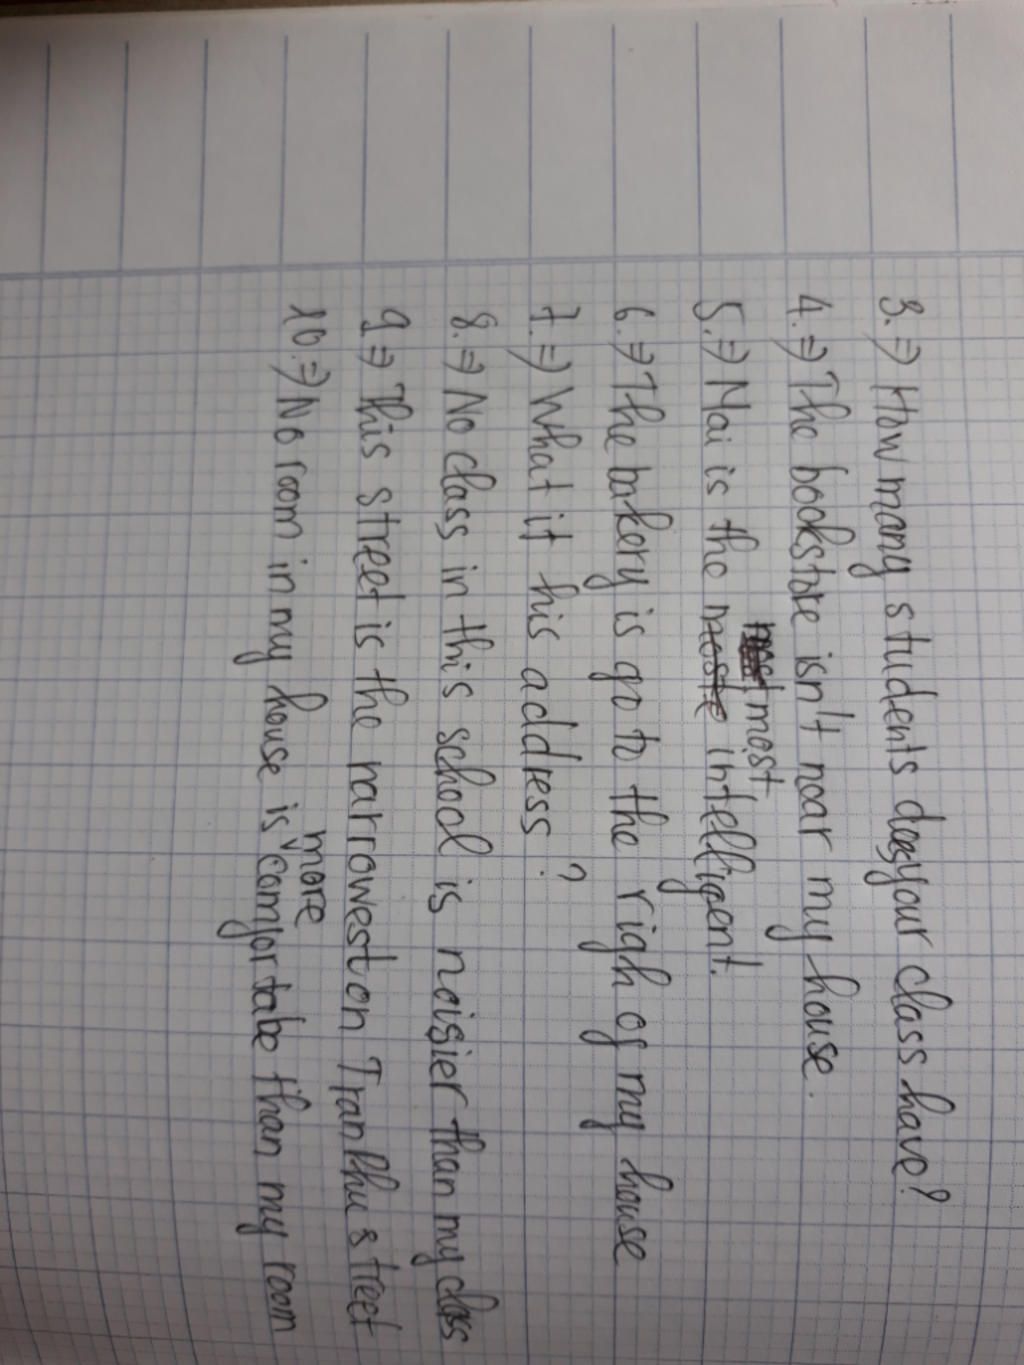 3. ⇒ How many students does your class have?
4. ⇒ The bookstore isn't near my house.
5. ⇒ Mai is the most intelligent.
6. ⇒ The bakery is go to the righ of my house
7. ⇒ What it his address?
8. ⇒ No class in this school is noisier than my class
9 ⇒ This street is the narrowest on Tran Phu street
10. ⇒ No room in my house is more comfortabe than my room